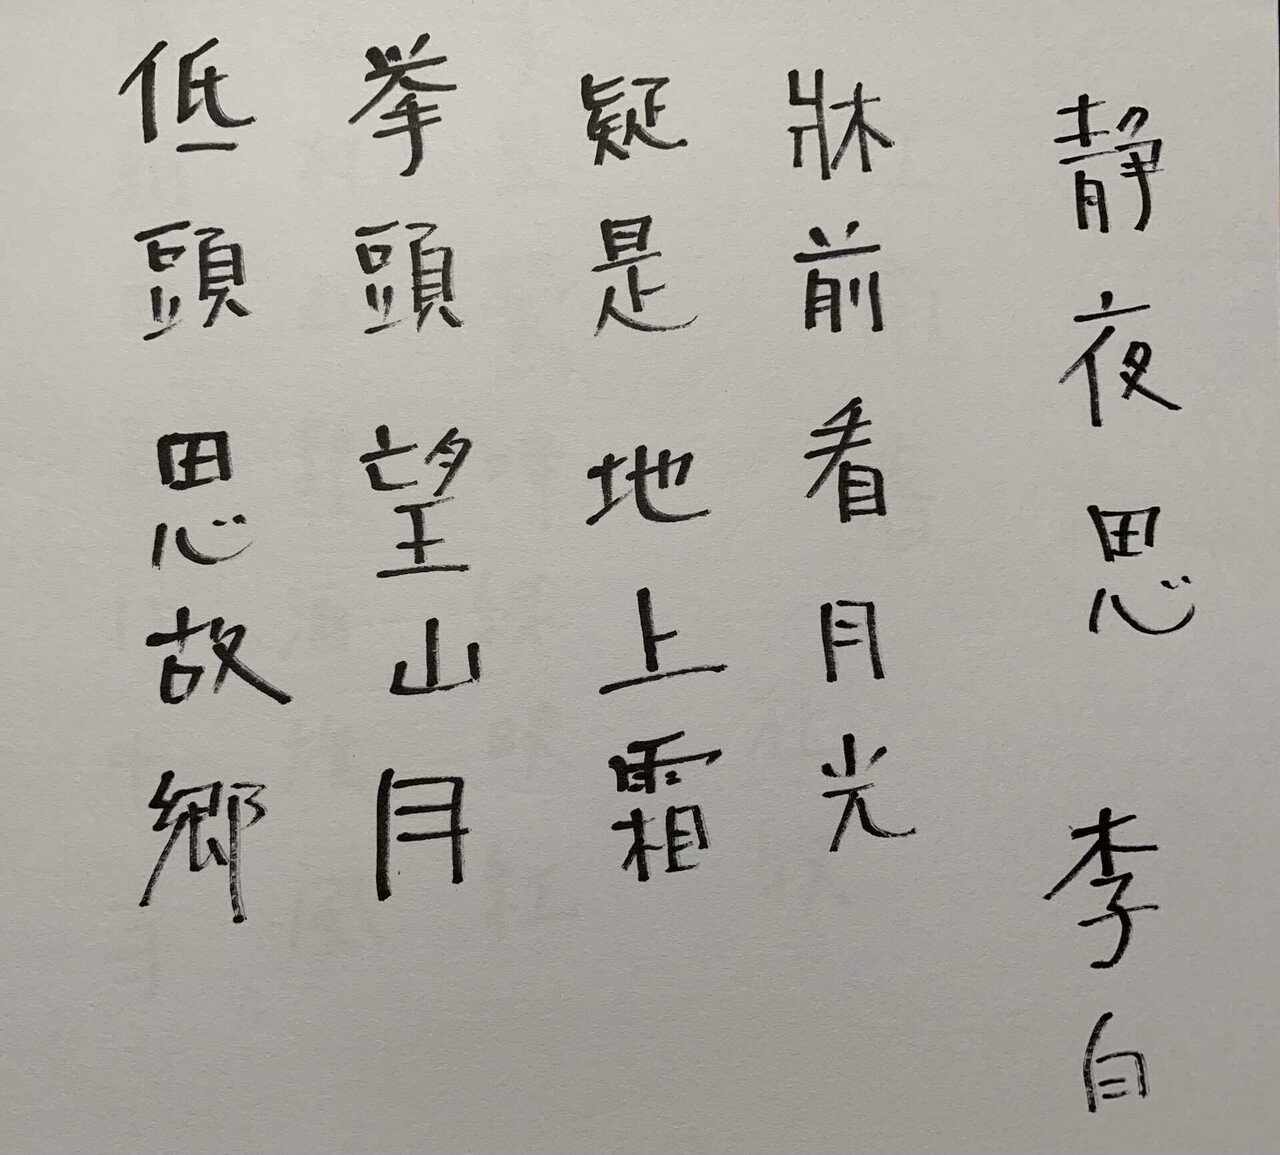 静夜思 李白
牀前看月光
疑是地上霜
挙頭望山月
低頭思故郷